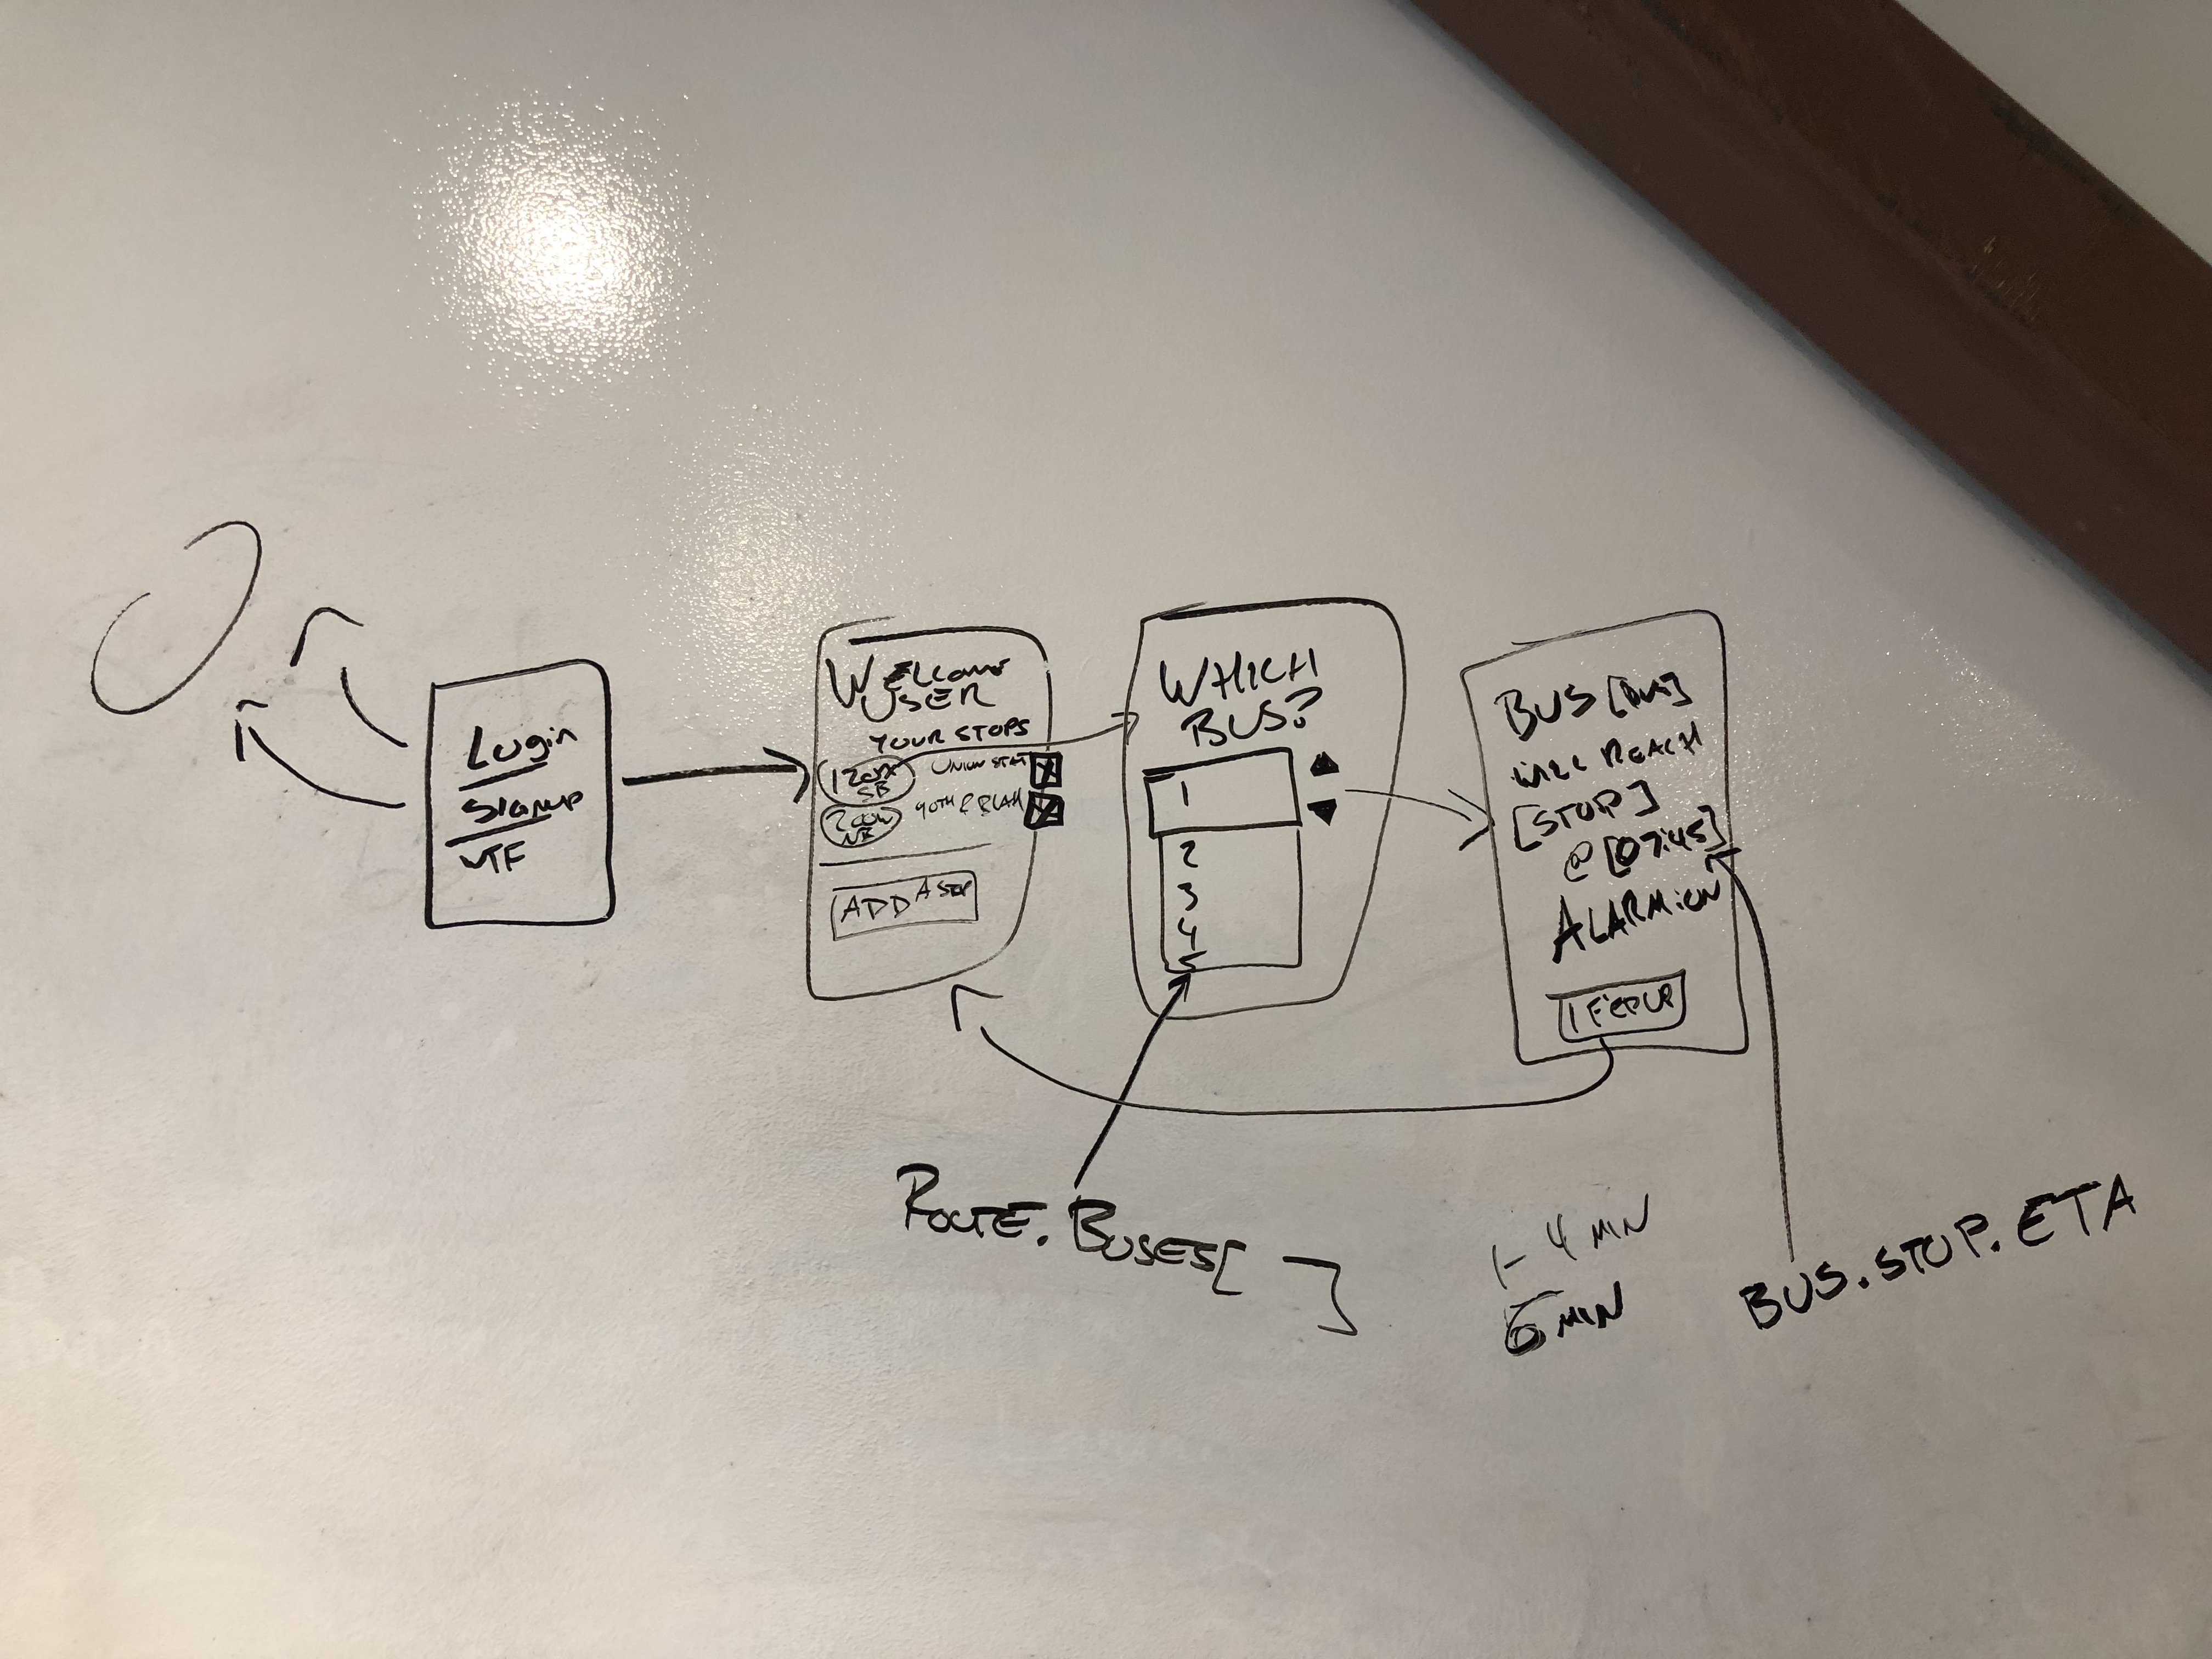 Login
Signup
WTF
WELCOME
USER
YOUR STOPS
SB
UNION STAT
40TH & BLAH
NB
ADD A STOP
WHICH
BUS?
1
2
3
4
5
BUS [BUS]
WILL REACH
[STOP]
@ [07:45]
ALARM:ON
I F'ED UP
ROUTE.BUSES[ ]
1-4 MIN
6 MIN
BUS.STOP.ETA